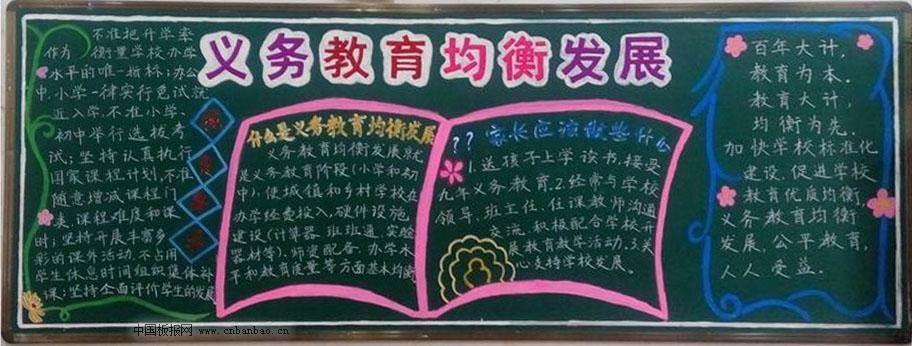 义务教育均衡发展
不准把升学率
作为衡量学校办学
水平的唯一指标;办公
中、小学一律实行免试就
近入学,不准小学、
初中举行选拔考
试;坚持认真执行
国家课程计划,不准
随意增减课程门
类、课程难度和课
时;坚持开展丰富多
彩的课外活动,不占用
学生休息时间组织集体补
课;坚持全面评价学生的发展
什么是义务教育均衡发展
义务教育均衡发展就
是义务教育阶段(小学和初
中),使城镇和乡村学校在
办学经费投入,硬件设施,
建设(计算器、班班通、实验
器材等),师资配备、办学水
平和教育质量等方面基本均衡
??家长应该做些什么
1.送孩子上学读书,接受
九年义务教育.2.经常与学校
领导、班主任、任课教师沟通
交流,积极配合学校开
展教育教学活动.3.关
心支持学校发展。
百年大计,
教育为本.
教育大计,
均衡为先.
加快学校标准化
建设,促进学校
教育优质均衡.
义务教育均衡
发展,公平教育,
人人受益.
中国板报网 www.cnbanbao.cn